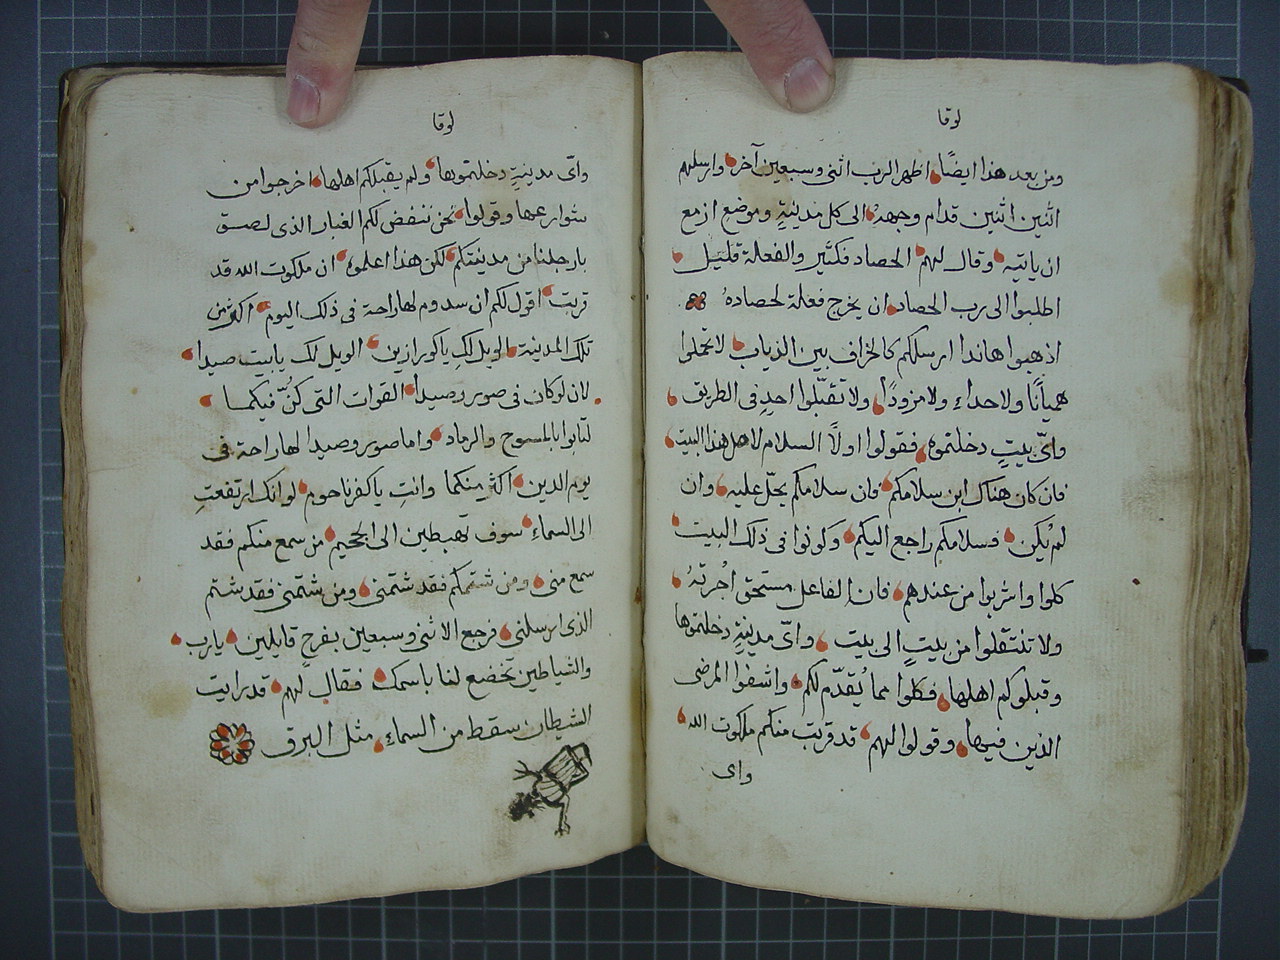 لوقا
ومن بعد هذا ايضًا اظهر الرب اثنى وسبعين آخر وارسلهم
اثنين اثنين قدام وجهه الى كل مدينةٍ وموضع ازمع
ان ياتيه وقال لهم الحصاد فكثير والفعلة قليل
اطلبوا الى رب الحصاد ان يخرج فعلة لحصاده
اذهبوا هاندا ارسلكم كالخراف بين الذياب لا تحملوا
هميانًا ولا حداء ولا مزودًا ولا تقبّلوا احدٍ فى الطريق
واىّ بيتٍ دخلتموه فقولوا اولًا السلام لاهل هذا البيت
فان كان هناك ابن سلامكم فان سلامكم يحلّ عليه وان
لم يكن فسلامكم راجع اليكم وكونوا فى ذلك البيت
كلوا واشربوا من عندهم فان الفاعل مستحق اُجرته
ولا تنتقلوا من بيتٍ الى بيت واىّ مدينةٍ دخلتموها
وقبلوكم اهلها فكلوا مما يُقدّم لكم واشفوا المرضى
الذين فيها وقولوا لهم قد قربت منكم ملكوت الله
واى
لوقا
واىّ مدينةٍ دخلتموها ولم يقبلكم اهلها اخرجوا من
شوارعها وقولوا نحن ننفض لكم الغبار الذى لصق
بارجلنا من مدينتكم لكن هذا اعلموه ان ملكوت الله قد
قربت اقول لكم ان سدوم لها راحة فى ذلك اليوم اكثر من
تلك المدينة الويل لكِ يا كورازين الويل لك يا بيت صيدا
لان لو كان فى صور وصيدا القوات التى كنّ فيكما
لتابوا بالمسوح والرماد واما صور وصيدا لها راحة فى
يوم الدين اكثر منكما وانتِ يا كفرناحوم لو انك ارتفعتِ
الى السماء سوف تهبطين الى الجحيم من سمع منكم فقد
سمع منى ومن شتمكم فقد شتمنى ومن شتمنى فقد شتم
الذى ارسلنى فرجع الاثنى وسبعين بفرحٍ قايلين يارب
والشياطين تخضع لنا باسمك فقال لهم قد رايت
الشيطان سقط من السماء مثل البرق